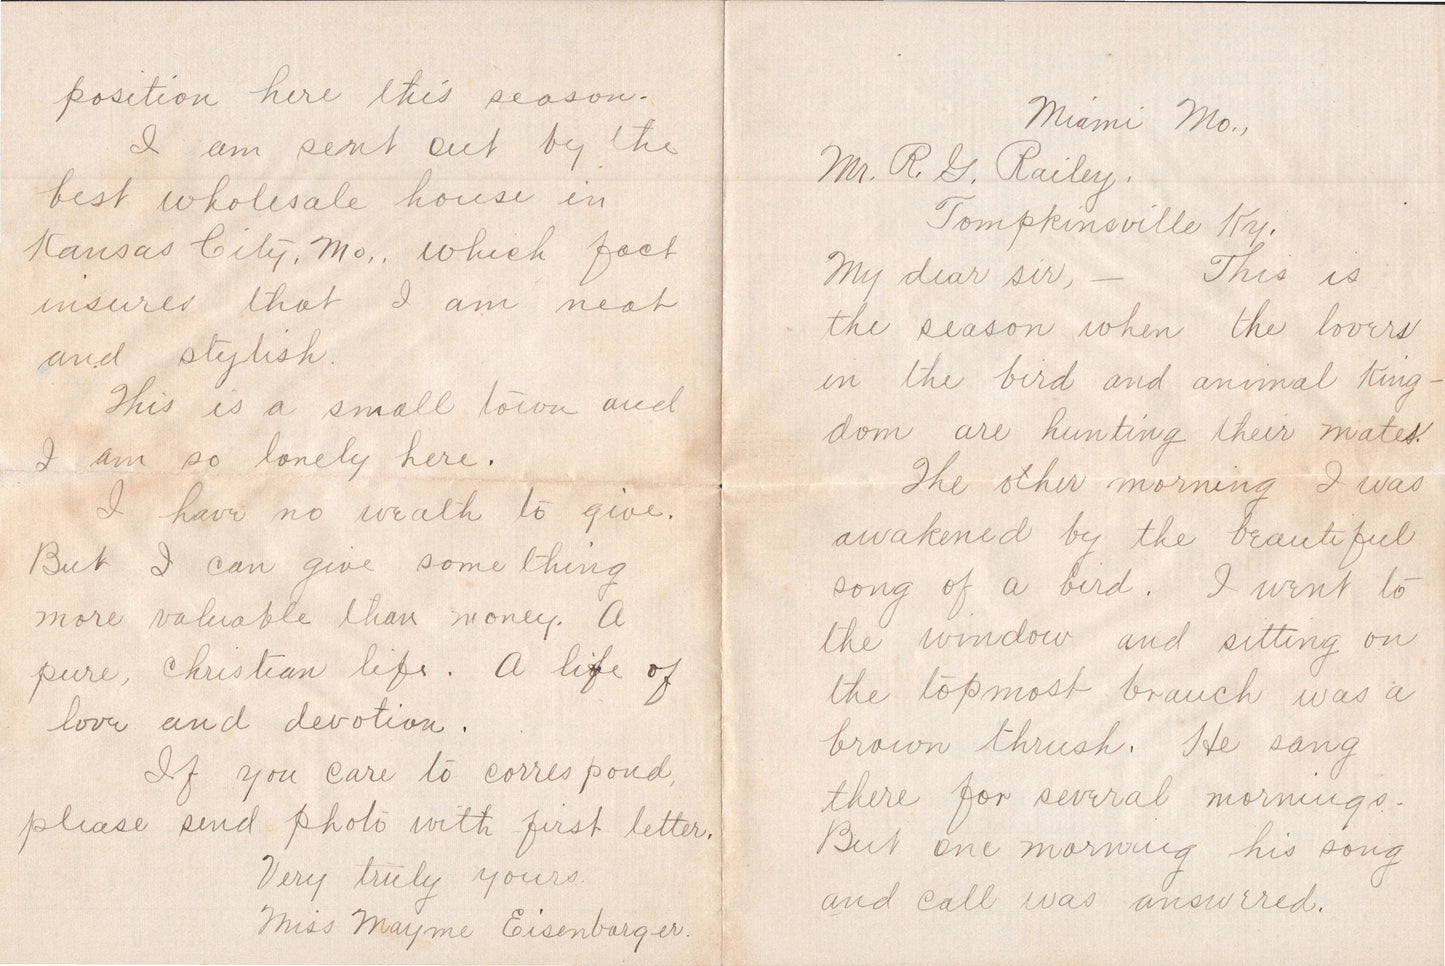 Miami Mo.,
Mr. R. G. Railey.
Tompkinsville Ky.
My dear sir, — This is
the season when the lovers
in the bird and animal King-
dom are hunting their mates.
The other morning I was
awakened by the beautiful
song of a bird. I went to
the window and sitting on
the topmost branch was a
brown thrush. He sang
there for several mornings.
But one morning his song
and call was answered.
position here this season.
I am sent out by the
best wholesale house in
Kansas City, Mo., which fact
insures that I am neat
and stylish.
This is a small town and
I am so lonely here.
I have no wealth to give.
But I can give something
more valuable than money. A
pure, christian life. A life of
love and devotion.
If you care to correspond,
please send photo with first letter.
Very truly yours.
Miss Mayme Eisenbarger.